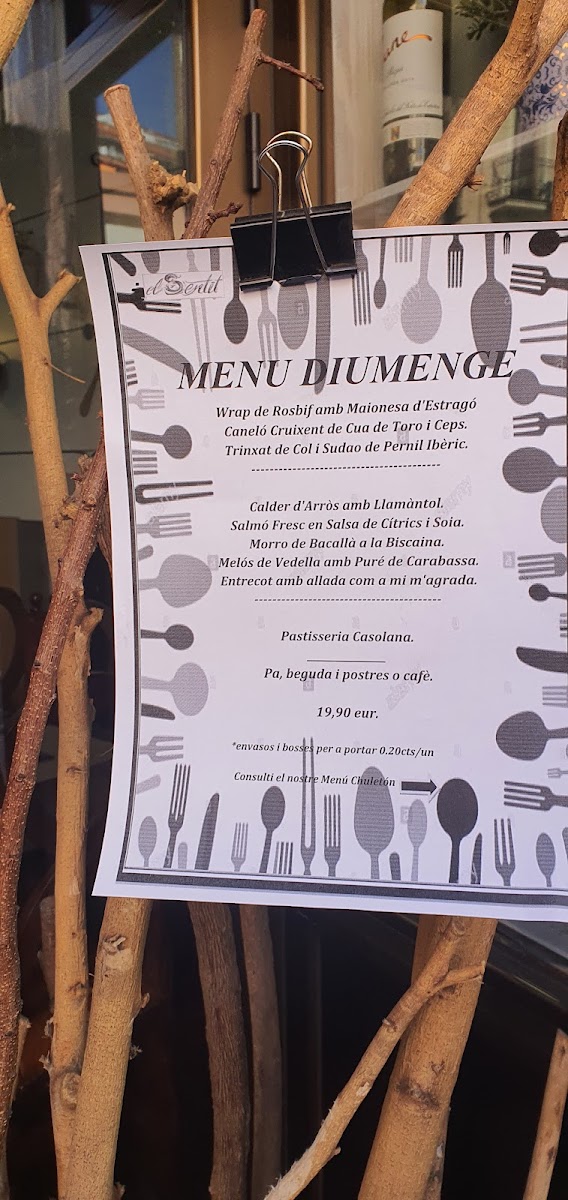 el Sentit
MENU DIUMENGE
Wrap de Rosbif amb Maionesa d'Estragó
Caneló Cruixent de Cua de Toro i Ceps.
Trinxat de Col i Sudao de Pernil Ibèric.
Calder d'Arròs amb Llamàntol.
Salmó Fresc en Salsa de Cítrics i Soia.
Morro de Bacallà a la Biscaina.
Melós de Vedella amb Puré de Carabassa.
Entrecot amb allada com a mi m'agrada.
Pastisseria Casolana.
Pa, beguda i postres o cafè.
19,90 eur.
*envasos i bosses per a portar 0.20cts/un
Consulti el nostre Menú Chuletón